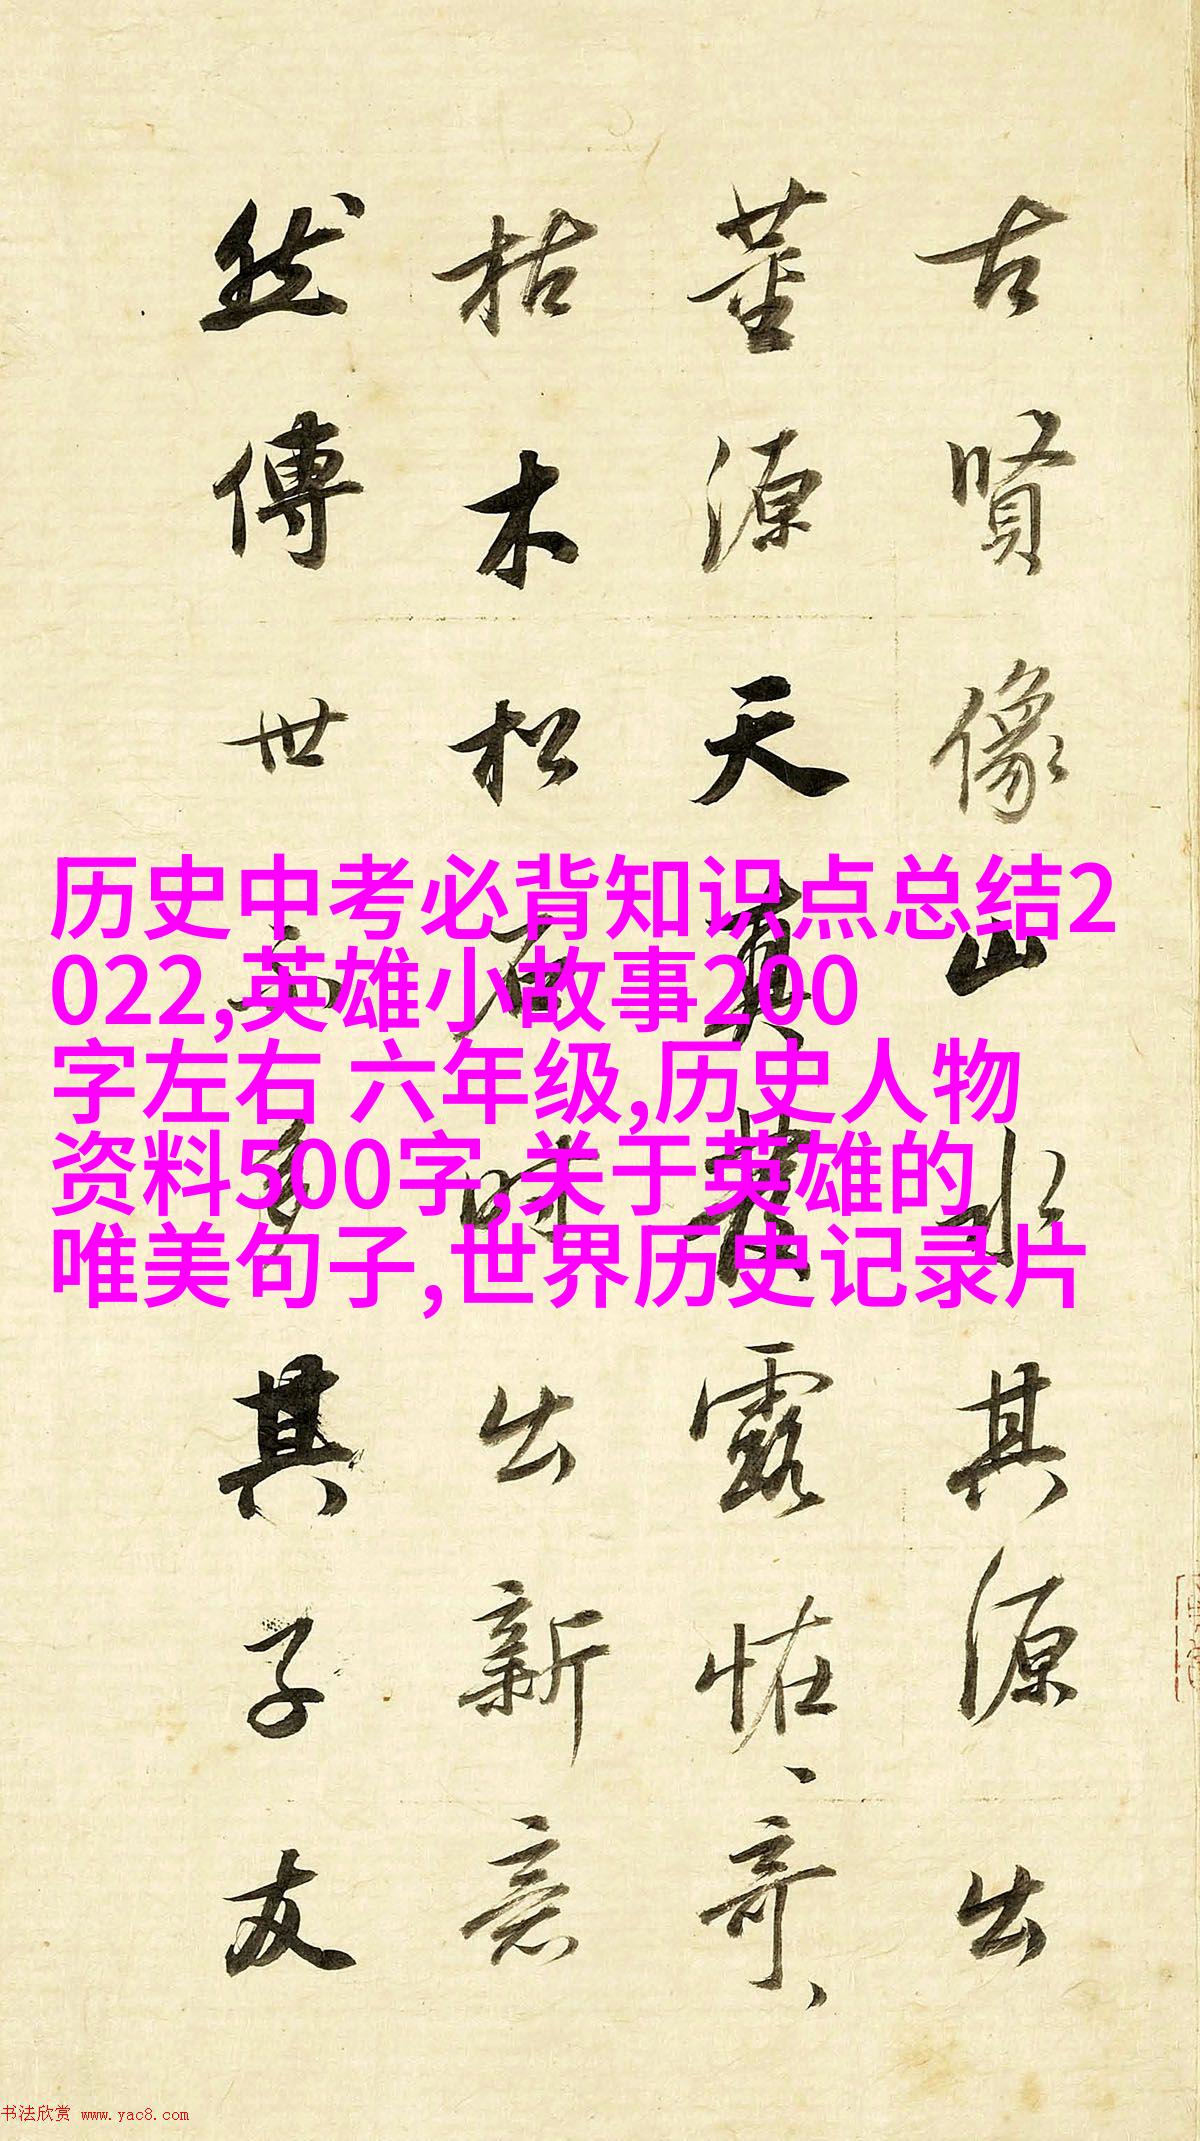 古賢像山水其源出
董源天真養露恠奇
枯木松石時出新意
然傳世不多其子友
历史中考必背知识点总结2
022,英雄小故事200
字左右 六年级,历史人物
资料500字,关于英雄的
唯美句子,世界历史记录片
书法欣赏 www.yac8.com